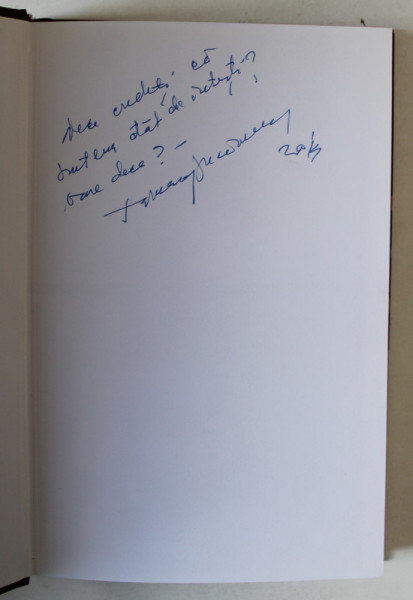 De ce credeți că
suntem atât de deștepți?
oare de ce? –
2014